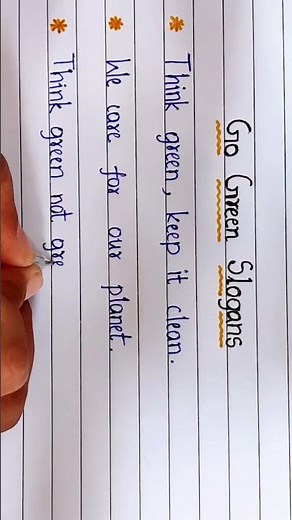 Go Green Slogans
* Think green, keep it clean.
* We care for our planet.
* Think green not gre